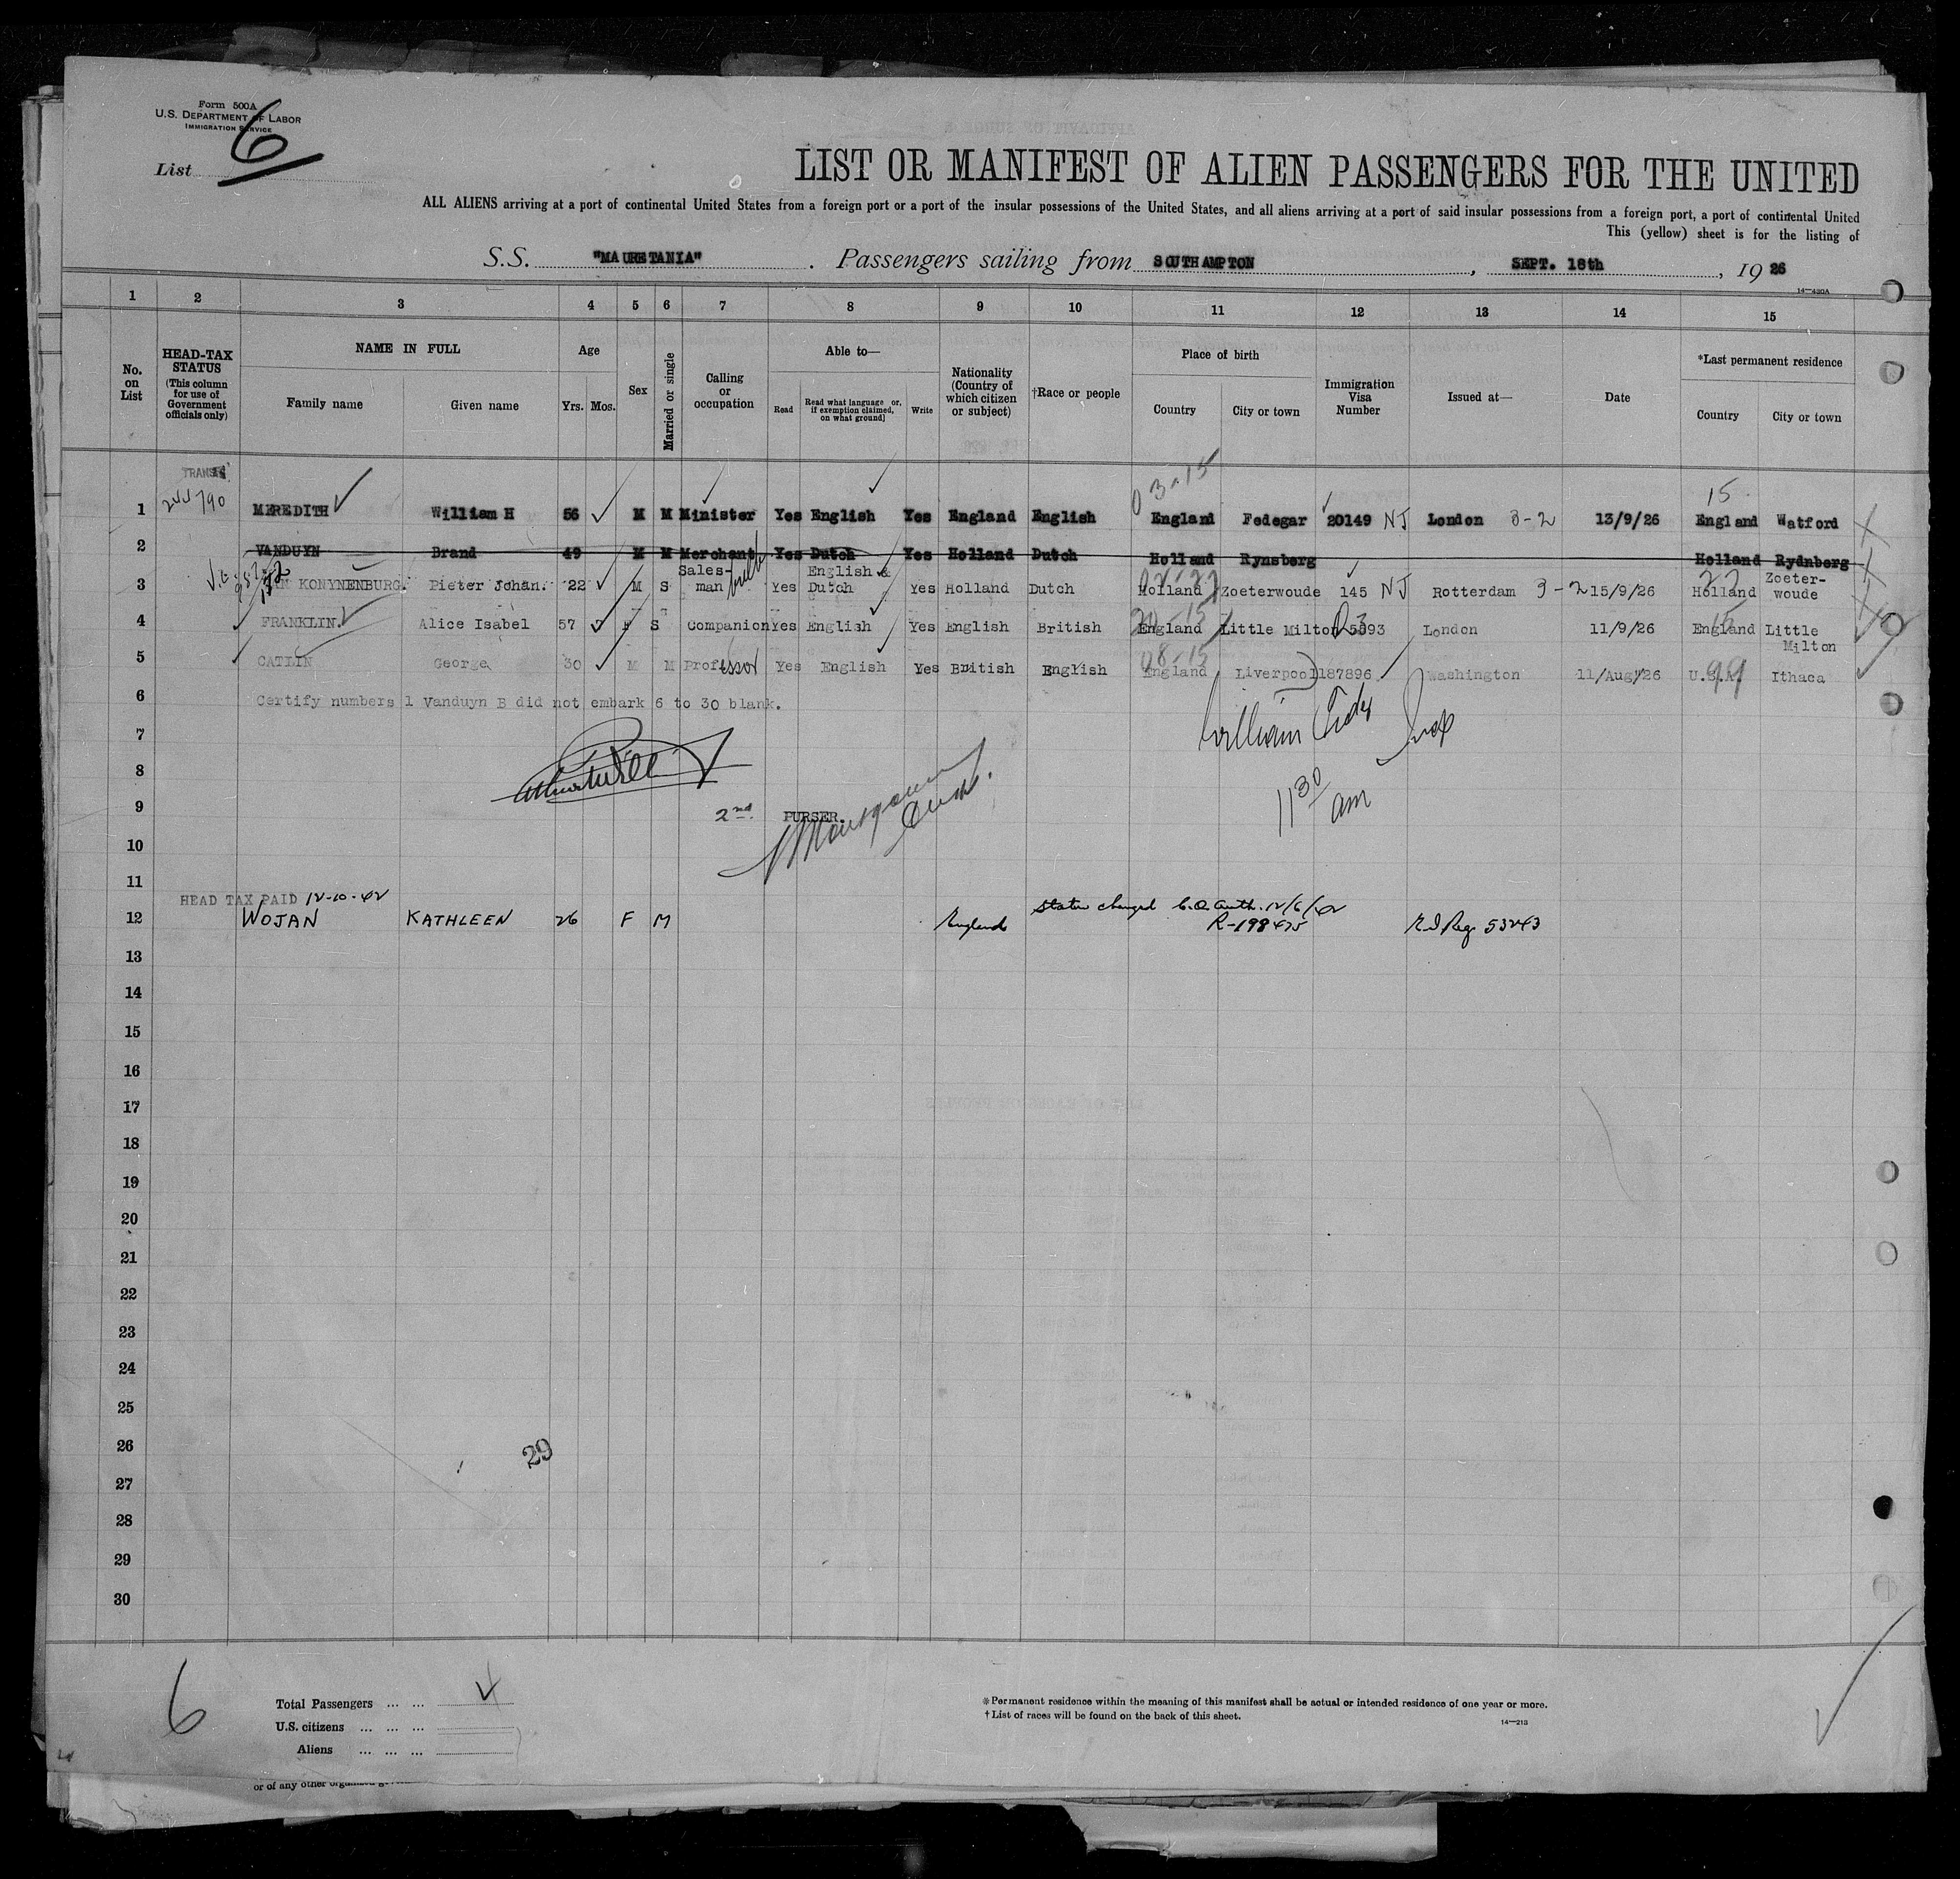 Form 500A
U.S. DEPARTMENT OF LABOR
IMMIGRATION SERVICE
List 6
LIST OR MANIFEST OF ALIEN PASSENGERS FOR THE UNITED
ALL ALIENS arriving at a port of continental United States from a foreign port or a port of the insular possessions of the United States, and all aliens arriving at a port of said insular possessions from a foreign port, a port of continental United
This (yellow) sheet is for the listing of
S.S. "MAURETANIA". Passengers sailing from SOUTHAMPTON, SEPT. 18th, 19 26
14—430A
1 2 3 4 5 6 7 8 9 10 11 12 13 14 15
No. on List
HEAD-TAX STATUS (This column for use of Government officials only)
NAME IN FULL
Family name Given name
Age
Yrs. Mos.
Sex
Married or single
Calling or occupation
Able to—
Read Read what language or, if exemption claimed, on what ground] Write
Nationality (Country of which citizen or subject)
†Race or people
Place of birth
Country City or town
Immigration Visa Number
Issued at—
Date
*Last permanent residence
Country City or town
TRANSIT
03-15 15
1 244790 MEREDITH William H 56 M M Minister Yes English Yes England English England Fedegar 20149 NJ London 3-2 13/9/26 England Watford
2 VANDUYN Brand 49 M M Merchant Yes Dutch Yes Holland Dutch Holland Rynsberg Holland Rydnberg
3 KONYNENBURG. Pieter Johan. 22 M S Sales-man Yes English & Dutch Yes Holland Dutch Holland Zoeterwoude 145 NJ Rotterdam 3-2 15/9/26 Holland Zoeter-woude
4 FRANKLIN. Alice Isabel 57 F S Companion Yes English Yes English British England Little Milton 5393 London 11/9/26 England Little Milton
5 CATLIN George 30 M M Professor Yes English Yes British English England Liverpool 187896 Washington 11/Aug/26 U.S.A. 99 Ithaca
6 Certify numbers 1 Vanduyn B did not embark 6 to 30 blank.
7
8
9 2nd PURSER.
11 30 am
10
11
HEAD TAX PAID 12-10-42
12 WOJAN KATHLEEN 26 F M England Status changed C.O. auth. 12/6/42 R-198475 Reg 53243
13
14
15
16
17
18
19
20
21
22
23
24
25
26 29
27
28
29
30
6
Total Passengers ... ... 4
U.S. citizens ... ... ...
Aliens ... ... ...
* Permanent residence within the meaning of this manifest shall be actual or intended residence of one year or more.
† List of races will be found on the back of this sheet.
14—213
or of any other